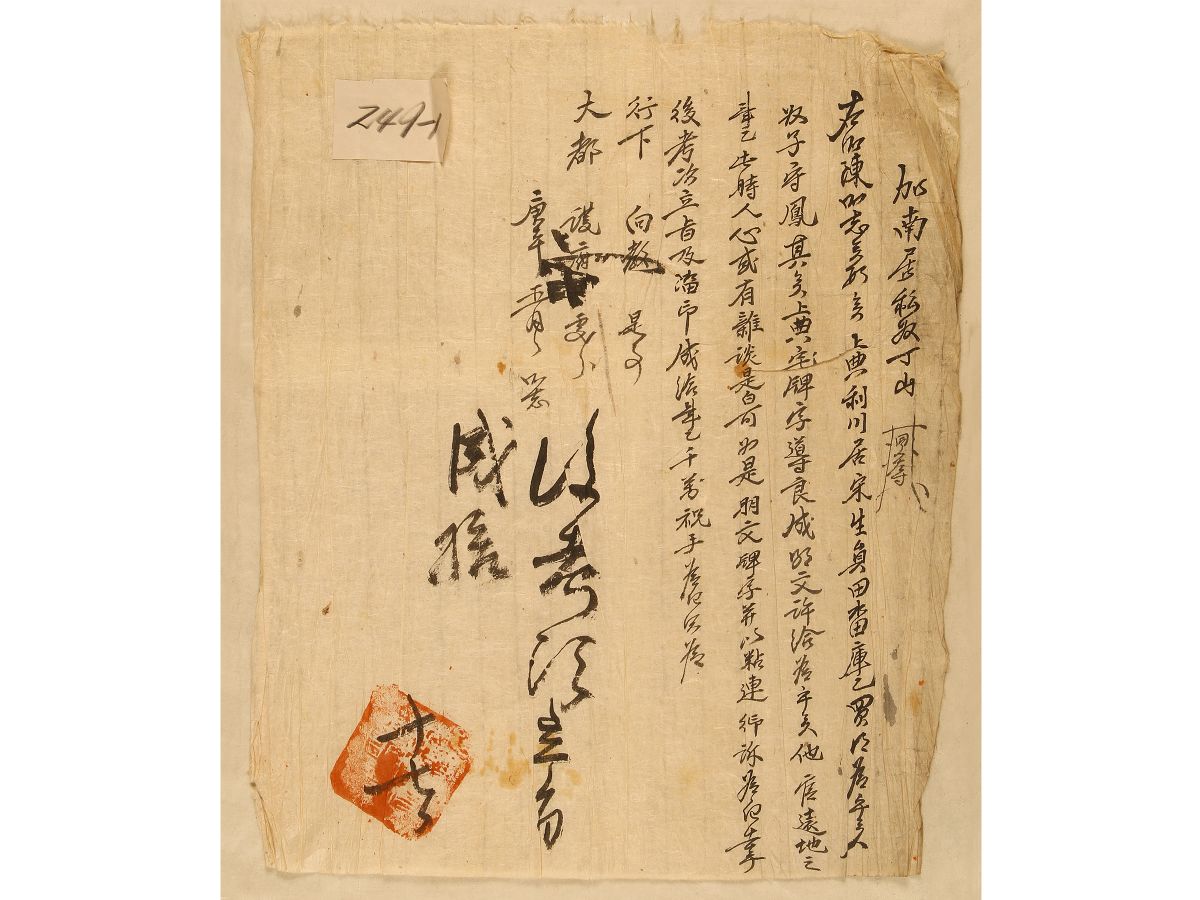 加南居私奴丁山
右謹陳所志矣段矣上典利川居宋生員田畓庫乙買得爲乎矣
奴子守鳳其矣上典宅牌字導良成明文許給爲乎矣他官遠地之
此時人心或有雜談是白可如是明文牌字幷以粘連仰訴爲白去乎
後考次立旨及踏印成給 千萬祝手爲白只爲
行下 向教 是事
大都護府 處分
庚午 五月 日 所志
後考次立旨
成給
十七日
249-1